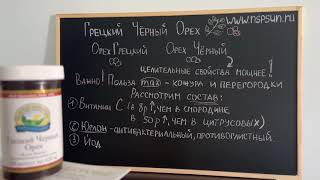 Грецкий Чёрный Орех
www.nspsun.ru
Орех Грецкий Орех Чёрный
2
целительные свойства мощнее!
Важно! Польза max - кожура и перегородки
Рассмотрим состав:
① Витамин С (в 8р↑, чем в смородине
в 50р↑, чем в цитрусовых)
② Юглон - антибактериальный, противоглистный
③ Йод
Грецкий Черный
Орех